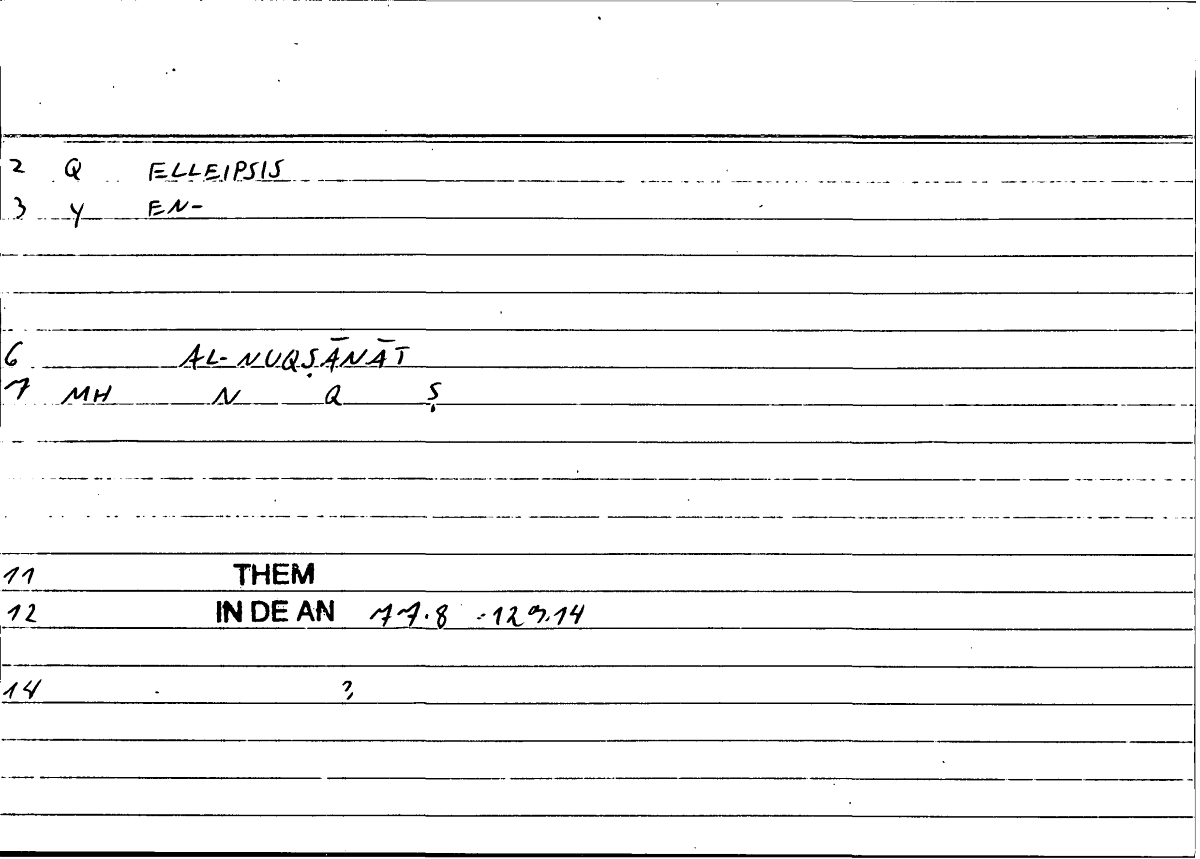 2 Q ELLEIPSIS
3 Y EN-
6 AL-NUQṢĀNĀT
7 MH N Q Ṣ
11 THEM
12 IN DE AN 77.8 -129.14
14 ?